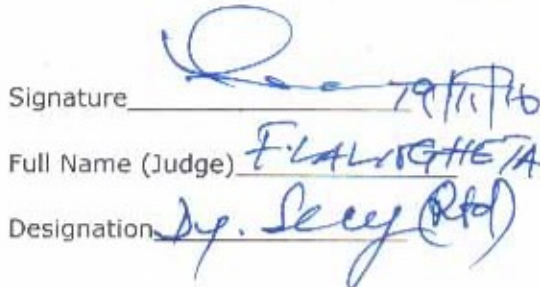 Signature 19/11/16
Full Name (Judge) F. LALNGHETA
Designation Dy. Secy (Rtd)